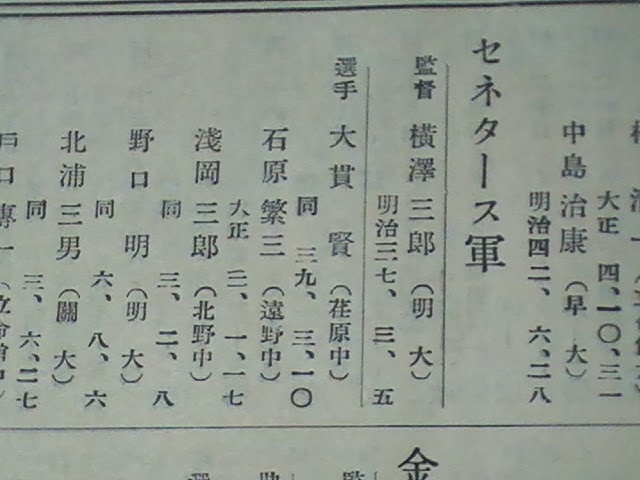 大正 四、一〇、三一
中島治康(早大)
明治四二、六、二八
セネタース軍
監督 横澤三郎(明大)
明治三七、三、五
選手 大貫賢(荏原中)
同 三九、三、一〇
石原繁三(遠野中)
大正 二、一、一七
淺岡三郎(北野中)
同 三、二、八
野口明(明大)
同 六、八、六
北浦三男(關大)
同 三、六、二七
金